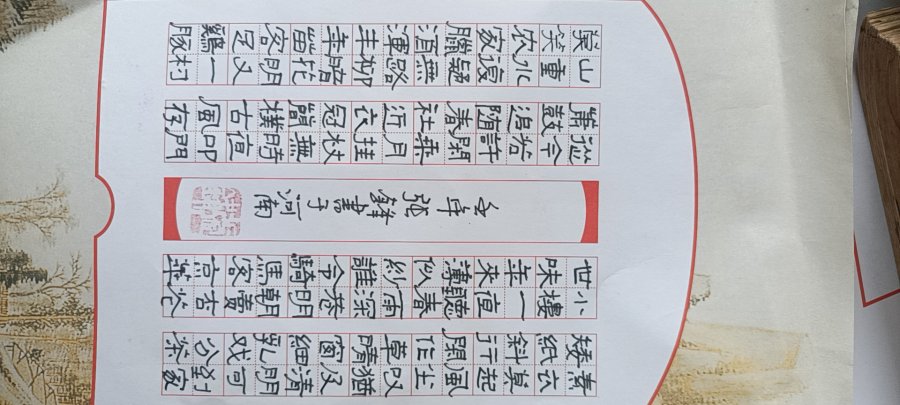 莫笑农家臘酒渾丰年留客足鷄豚
山重水復疑無路柳暗花明又一村
簫鼓追隨春社近衣冠簡樸古風存
從今若許閑乘月拄杖無時夜叩門
張鋒書于河南
世味年來薄似紗誰令騎馬客京華
小樓一夜聽春雨深巷明朝賣杏花
矮紙斜行閑作草晴窗細乳戏分茶
素衣莫起風尘叹猶及清明可到家